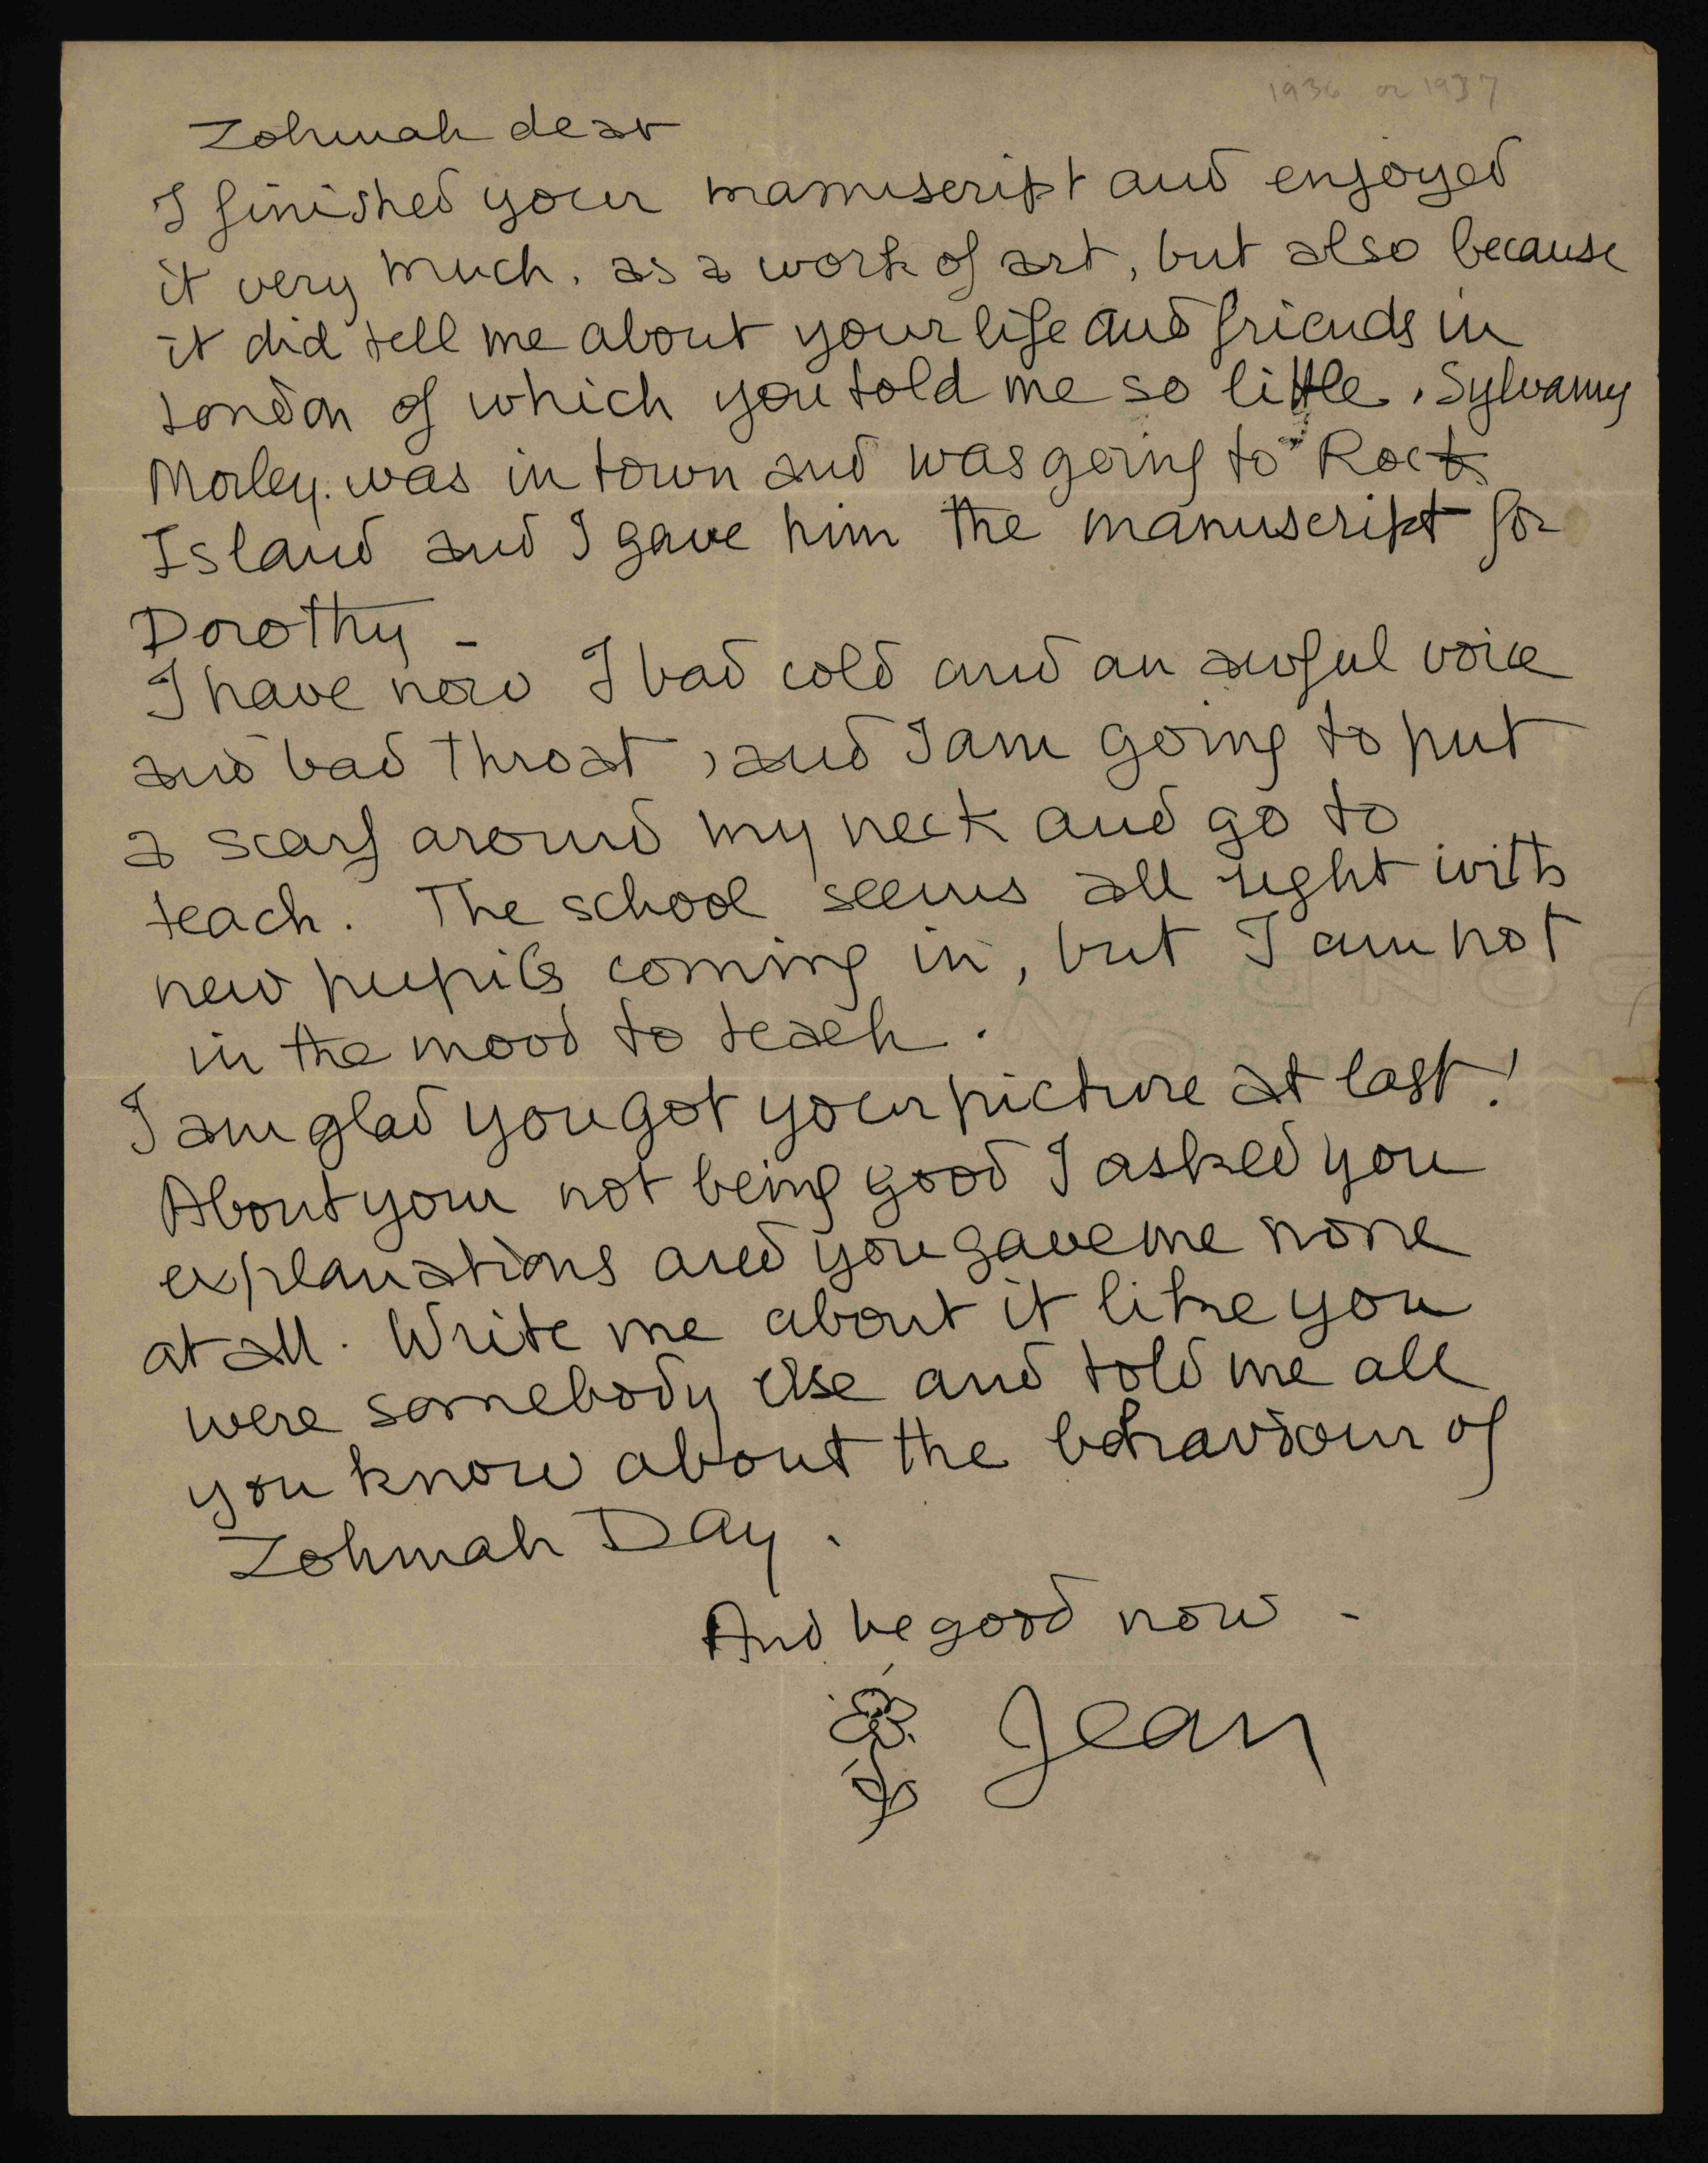 1936 or 1937
Zohmah dear
I finished your manuscript and enjoyed
it very much, as a work of art, but also because
it did tell me about your life and friends in
London of which you told me so little. Sylvanus
Morley. was in town and was going to Rock
Island and I gave him the manuscript for
Dorothy –
I have now I bad cold and an awful voice
and bad throat, and I am going to put
a scarf around my neck and go to
teach. The school seems all right with
new pupils coming in, but I am not
in the mood to teach.
I am glad you got your picture at last!
About your not being good I asked you
explanations and you gave me none
at all. Write me about it like you
were somebody else and told me all
you know about the behaviour of
Zohmah Day.
And be good now –
Jean